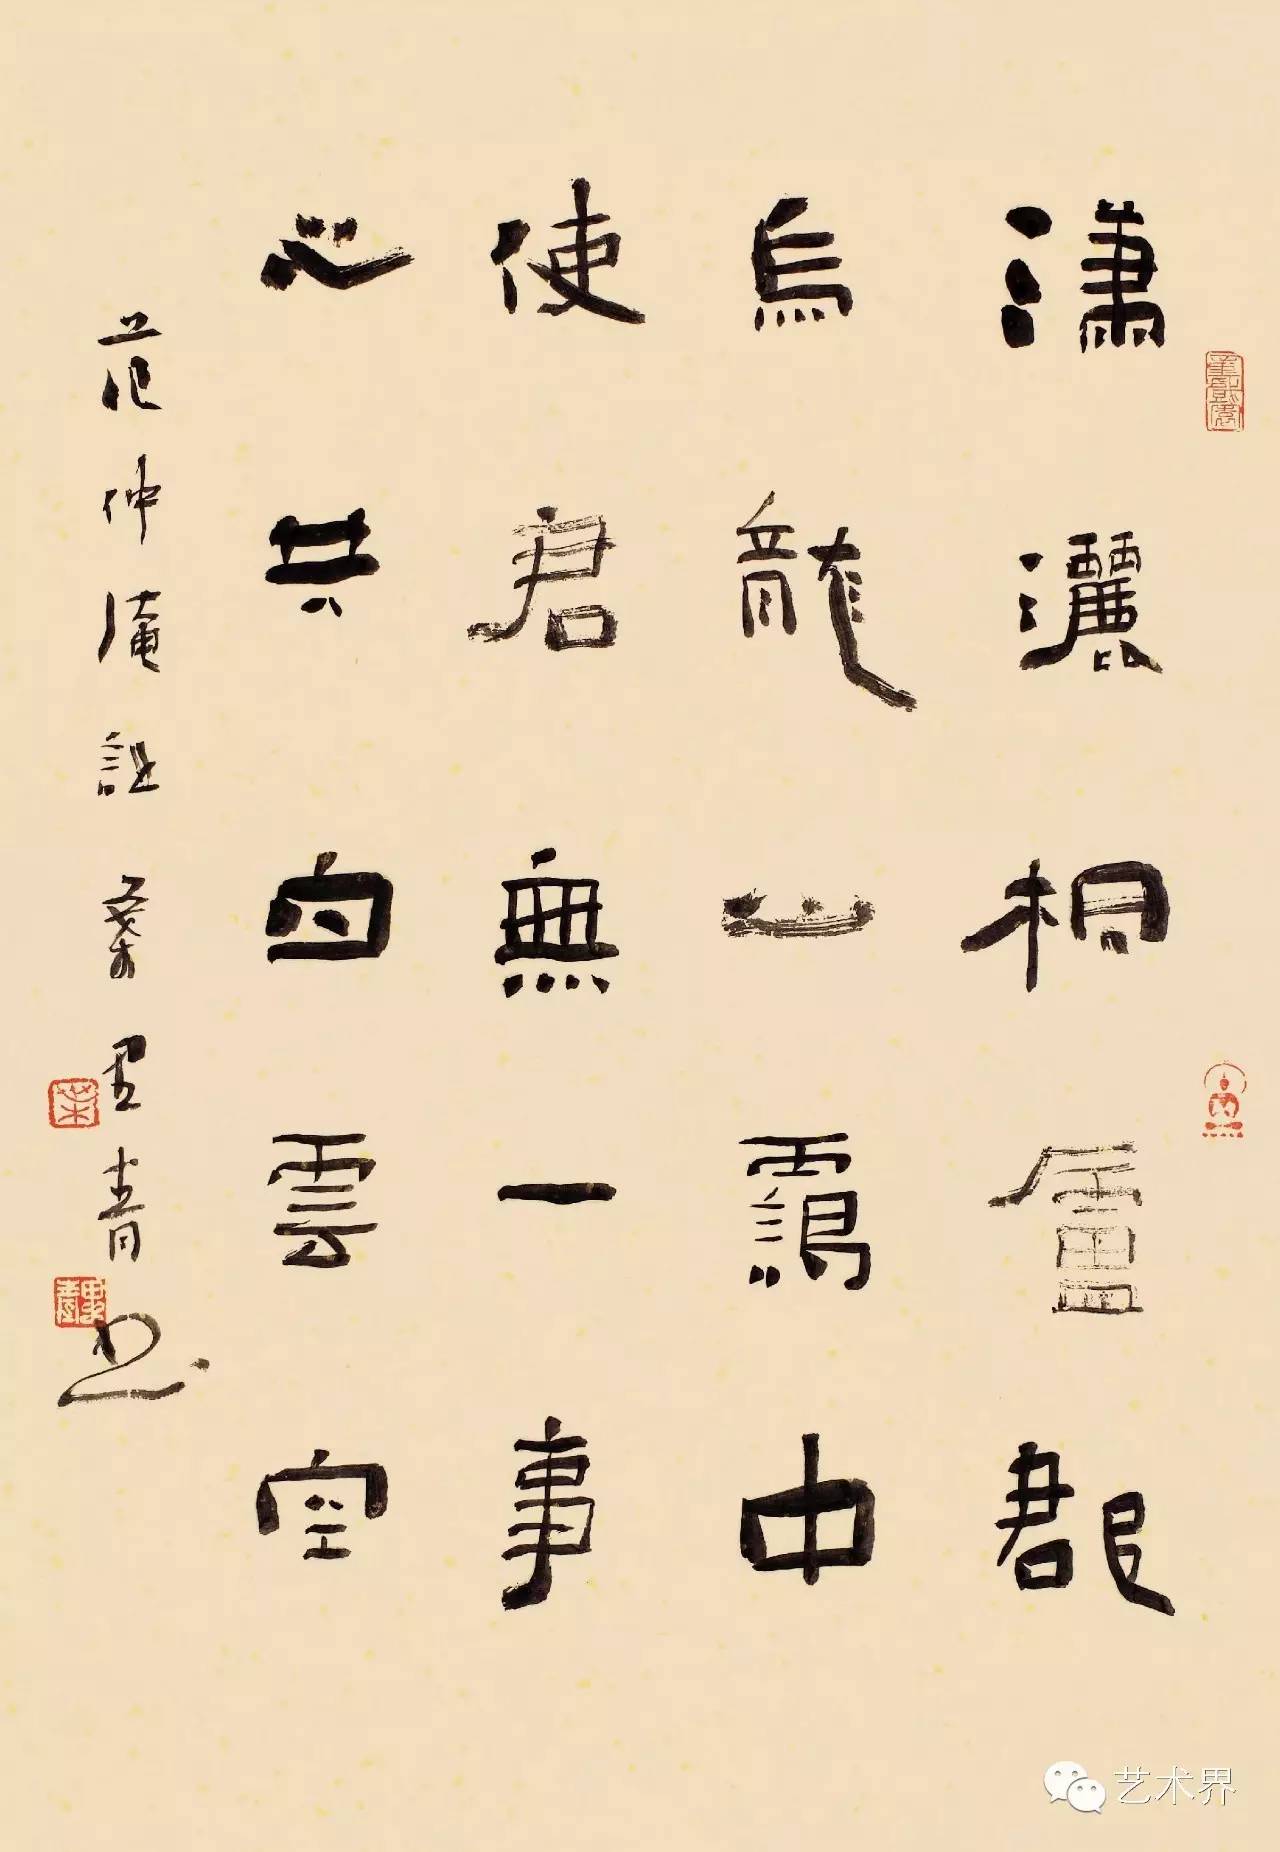 瀟灑桐廬郡
烏龍山靄中
使君無一事
心共白雲空
范仲淹詩葉里青書
艺术界